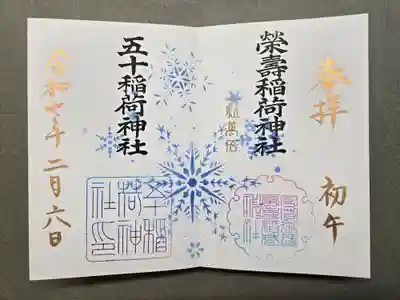 奉拝
初午
榮壽稲荷神社
五十稲荷神社
令和七年二月六日
五十稲
荷神
社印